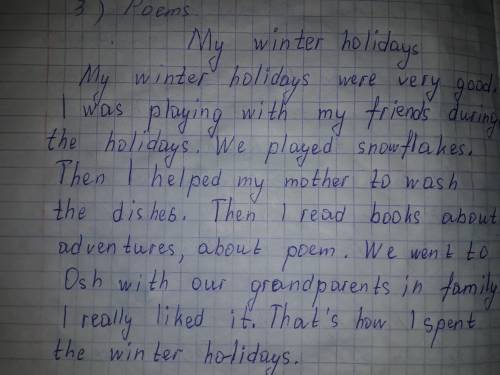 3) Poems
My winter holidays
My winter holidays were very good.
I was playing with my friends during
the holidays. We played snowflakes.
Then I helped my mother to wash
the dishes. Then I read books about
adventures, about poem. We went to
Osh with our grandparents in family
I really liked it. That's how I spent
the winter holidays.